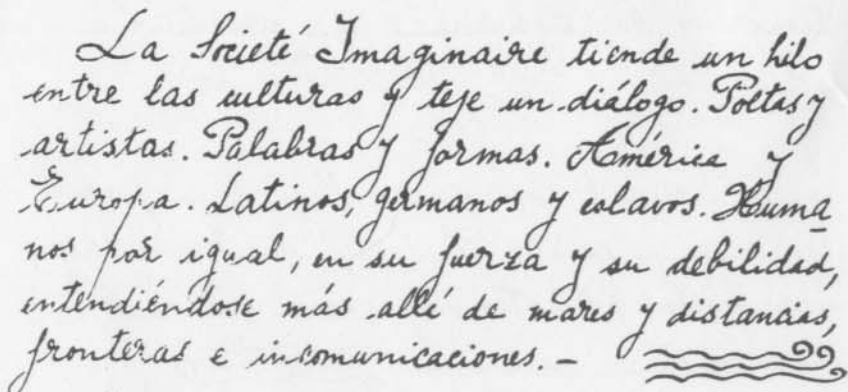 La Societé Imaginaire tiende un hilo
entre las culturas y teje un diálogo. Poetas y
artistas. Palabras y formas. América y
Europa. Latinos, germanos y eslavos. Huma
nos por igual, en su fuerza y su debilidad,
entendiéndose más allé de mares y distancias,
fronteras e incomunicaciones. –